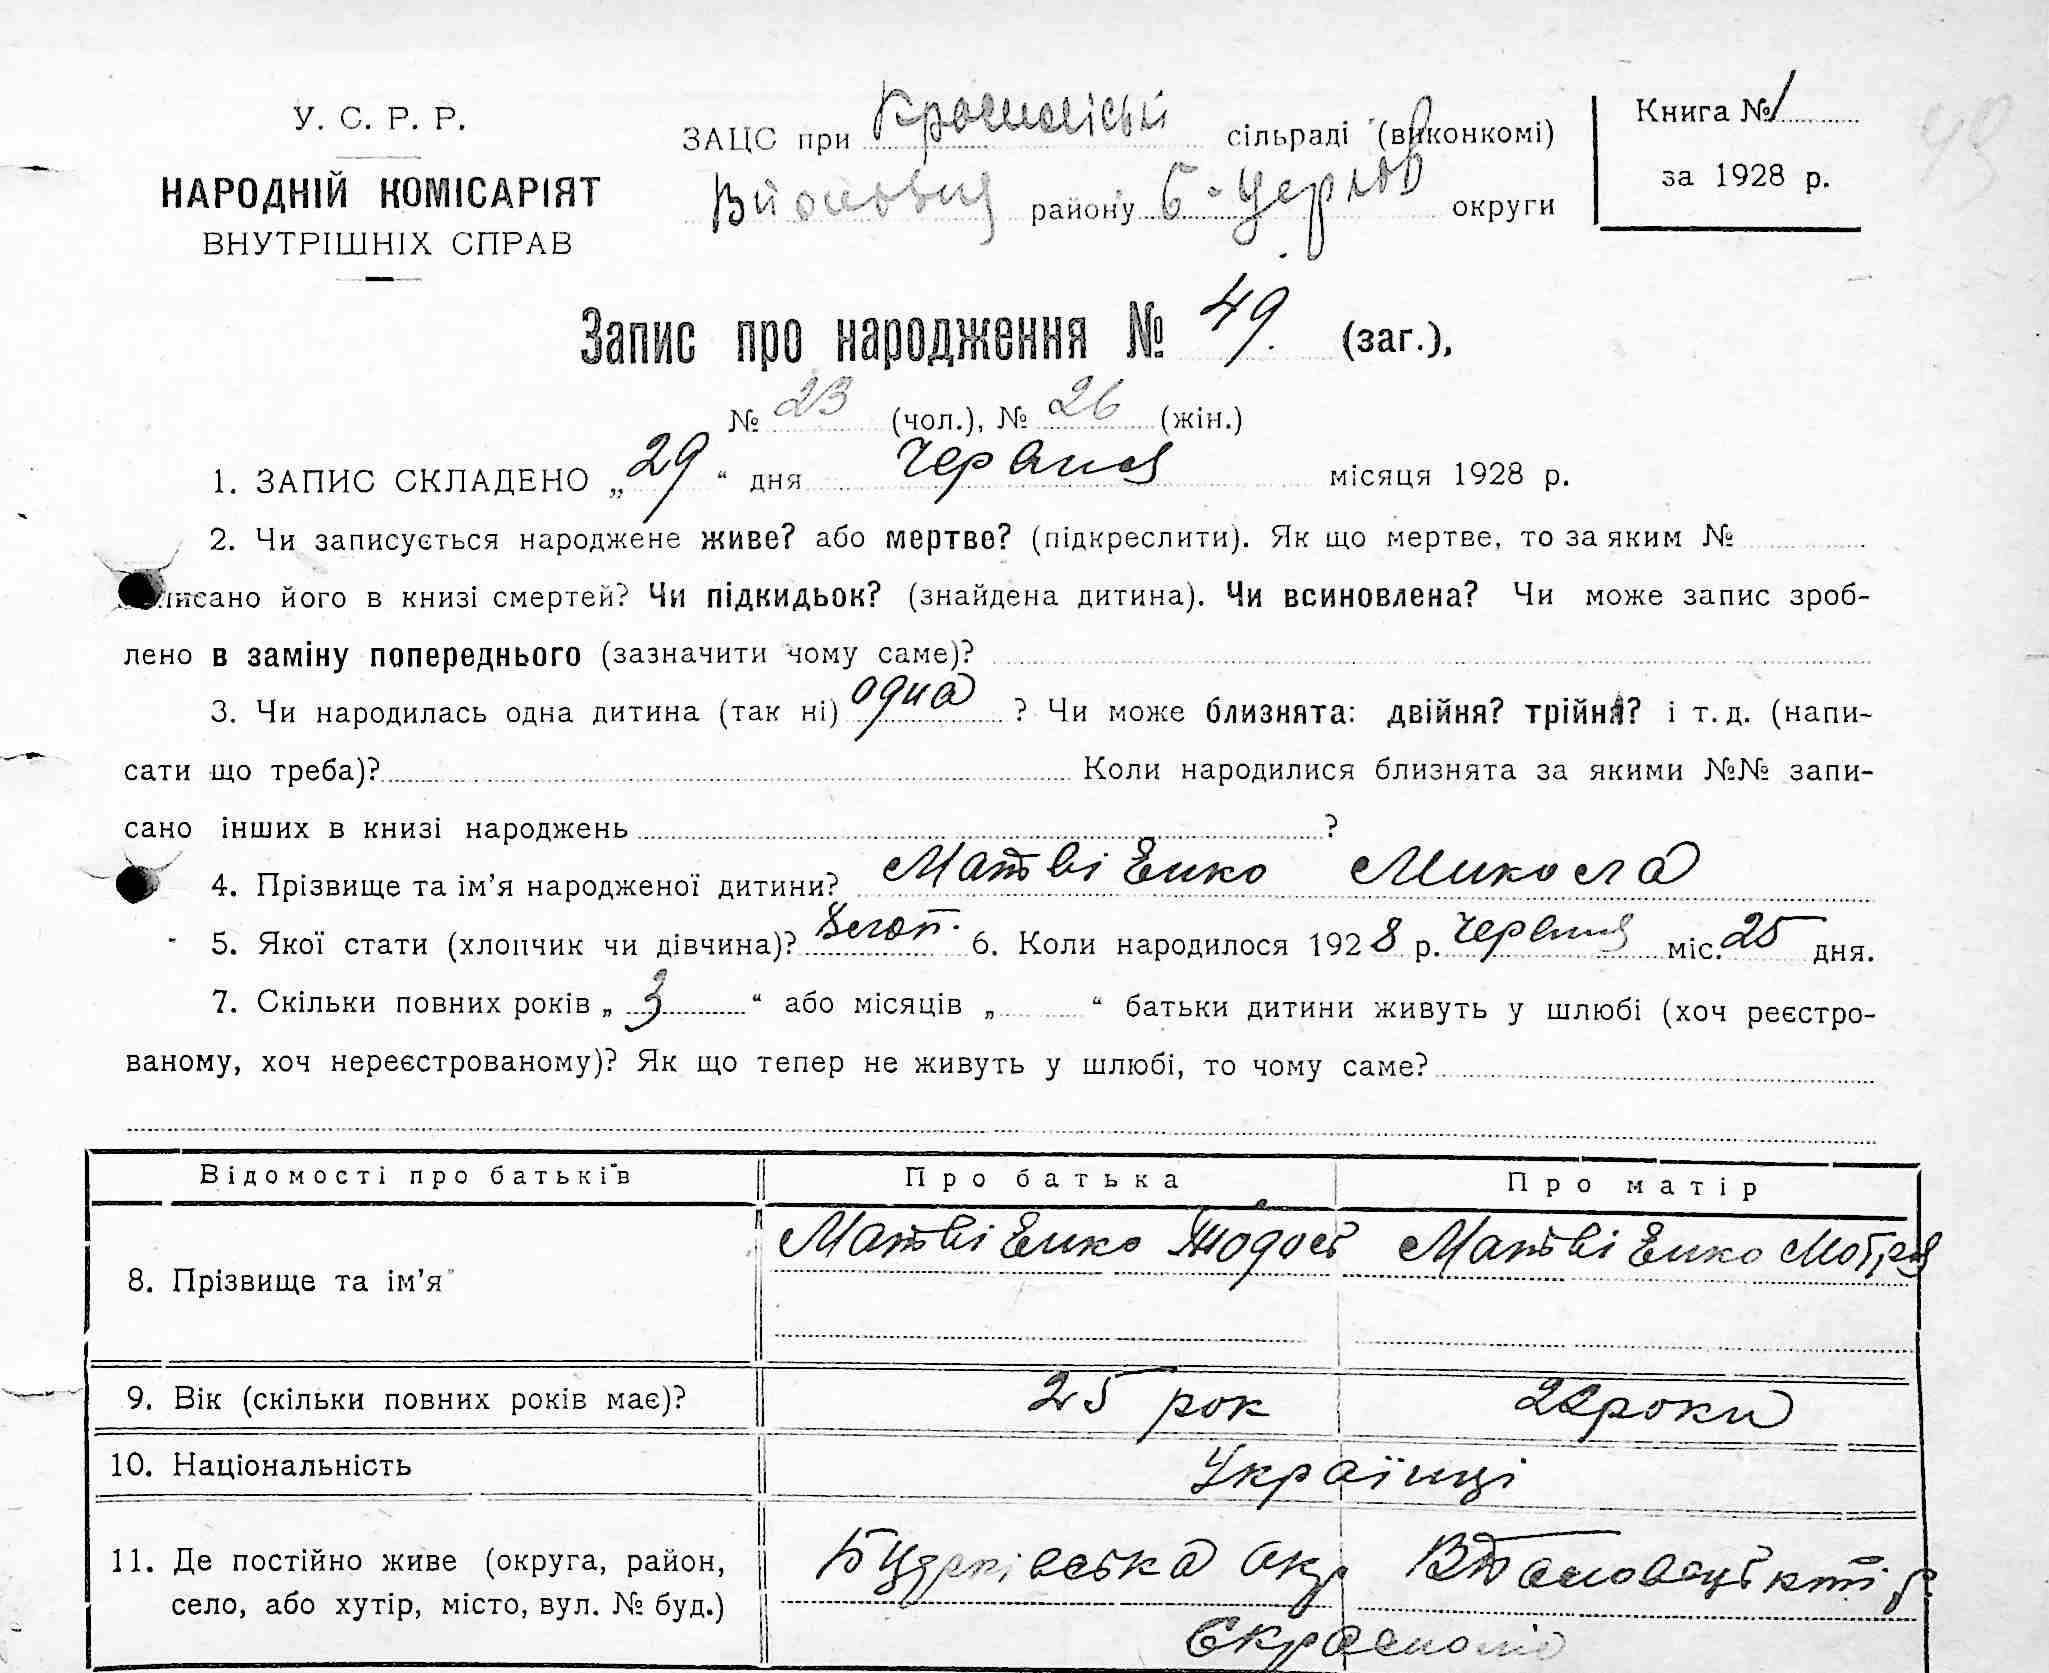 У. С. Р. Р.
НАРОДНІЙ КОМІСАРІЯТ
ВНУТРІШНІХ СПРАВ
ЗАЦС при сільраді (виконкомі)
району округи
Книга № 1
за 1928 р.
49
Запис про народження № 49. (заг.),
№ 23 (чол.), № 26 (жін.)
1. ЗАПИС СКЛАДЕНО „29“ дня Червня місяця 1928 р.
2. Чи записується народжене живе? або мертве? (підкреслити). Як що мертве, то за яким №
писано його в книзі смертей? Чи підкидьок? (знайдена дитина). Чи всиновлена? Чи може запис зроб-
лено в заміну попереднього (зазначити чому саме)?
3. Чи народилась одна дитина (так ні) одна ? Чи може близнята: двійня? трійня? і т. д. (напи-
сати що треба)? Коли народилися близнята за якими №№ запи-
сано інших в книзі народжень ?
4. Прізвище та ім’я народженої дитини? Матвієнко Микола
5. Якої стати (хлопчик чи дівчина)? 6. Коли народилося 1928 р. Червня міс. 25 дня.
7. Скільки повних років „ 3 “ або місяців „ “ батьки дитини живуть у шлюбі (хоч реєстро-
ваному, хоч нереєстрованому)? Як що тепер не живуть у шлюбі, то чому саме?
Відомості про батьків Про батька Про матір
8. Прізвище та ім’я Матвієнко Матвієнко Мотря
9. Вік (скільки повних років має)? 25 рок 22 роки
10. Національність Українці
11. Де постійно живе (округа, район,
село, або хутір, місто, вул. № буд.)